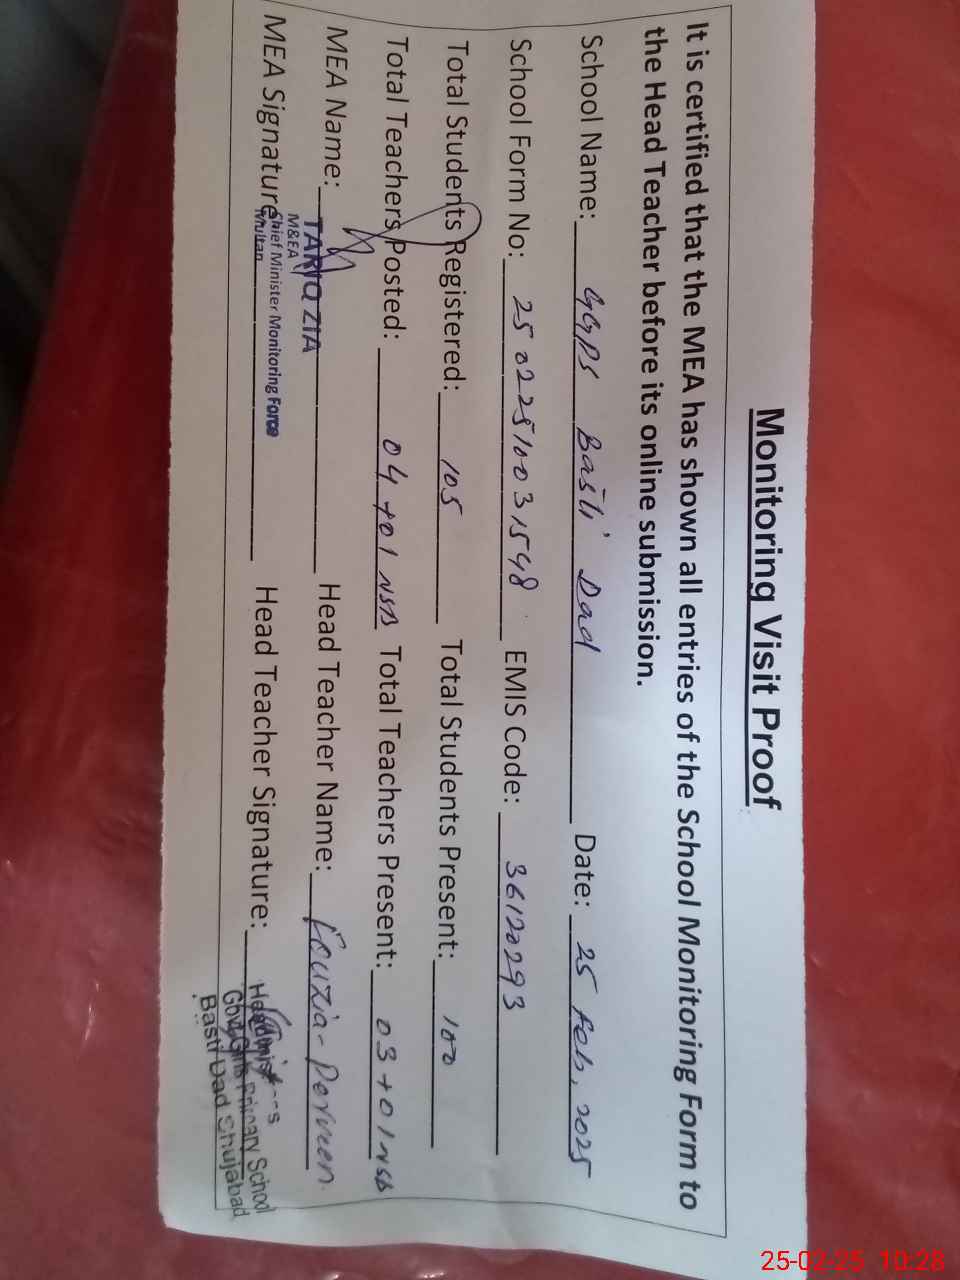 Monitoring Visit Proof
It is certified that the MEA has shown all entries of the School Monitoring Form to
the Head Teacher before its online submission.
School Name: GGPS Basti Dad Date: 25 Feb, 2025
School Form No: 25022510031548 EMIS Code: 36120293
Total Students Registered: 105 Total Students Present: 100
Total Teachers Posted: 04+01 NSB Total Teachers Present: 03+01 NSB
MEA Name: TARIQ ZIA Head Teacher Name: Fouzia Perveen
M&EA
MEA Signature Chief Minister Monitoring Force Head Teacher Signature:
Multan
Govt. Girls Primary School
Basti Dad Shujabad
25-02-25 10:28